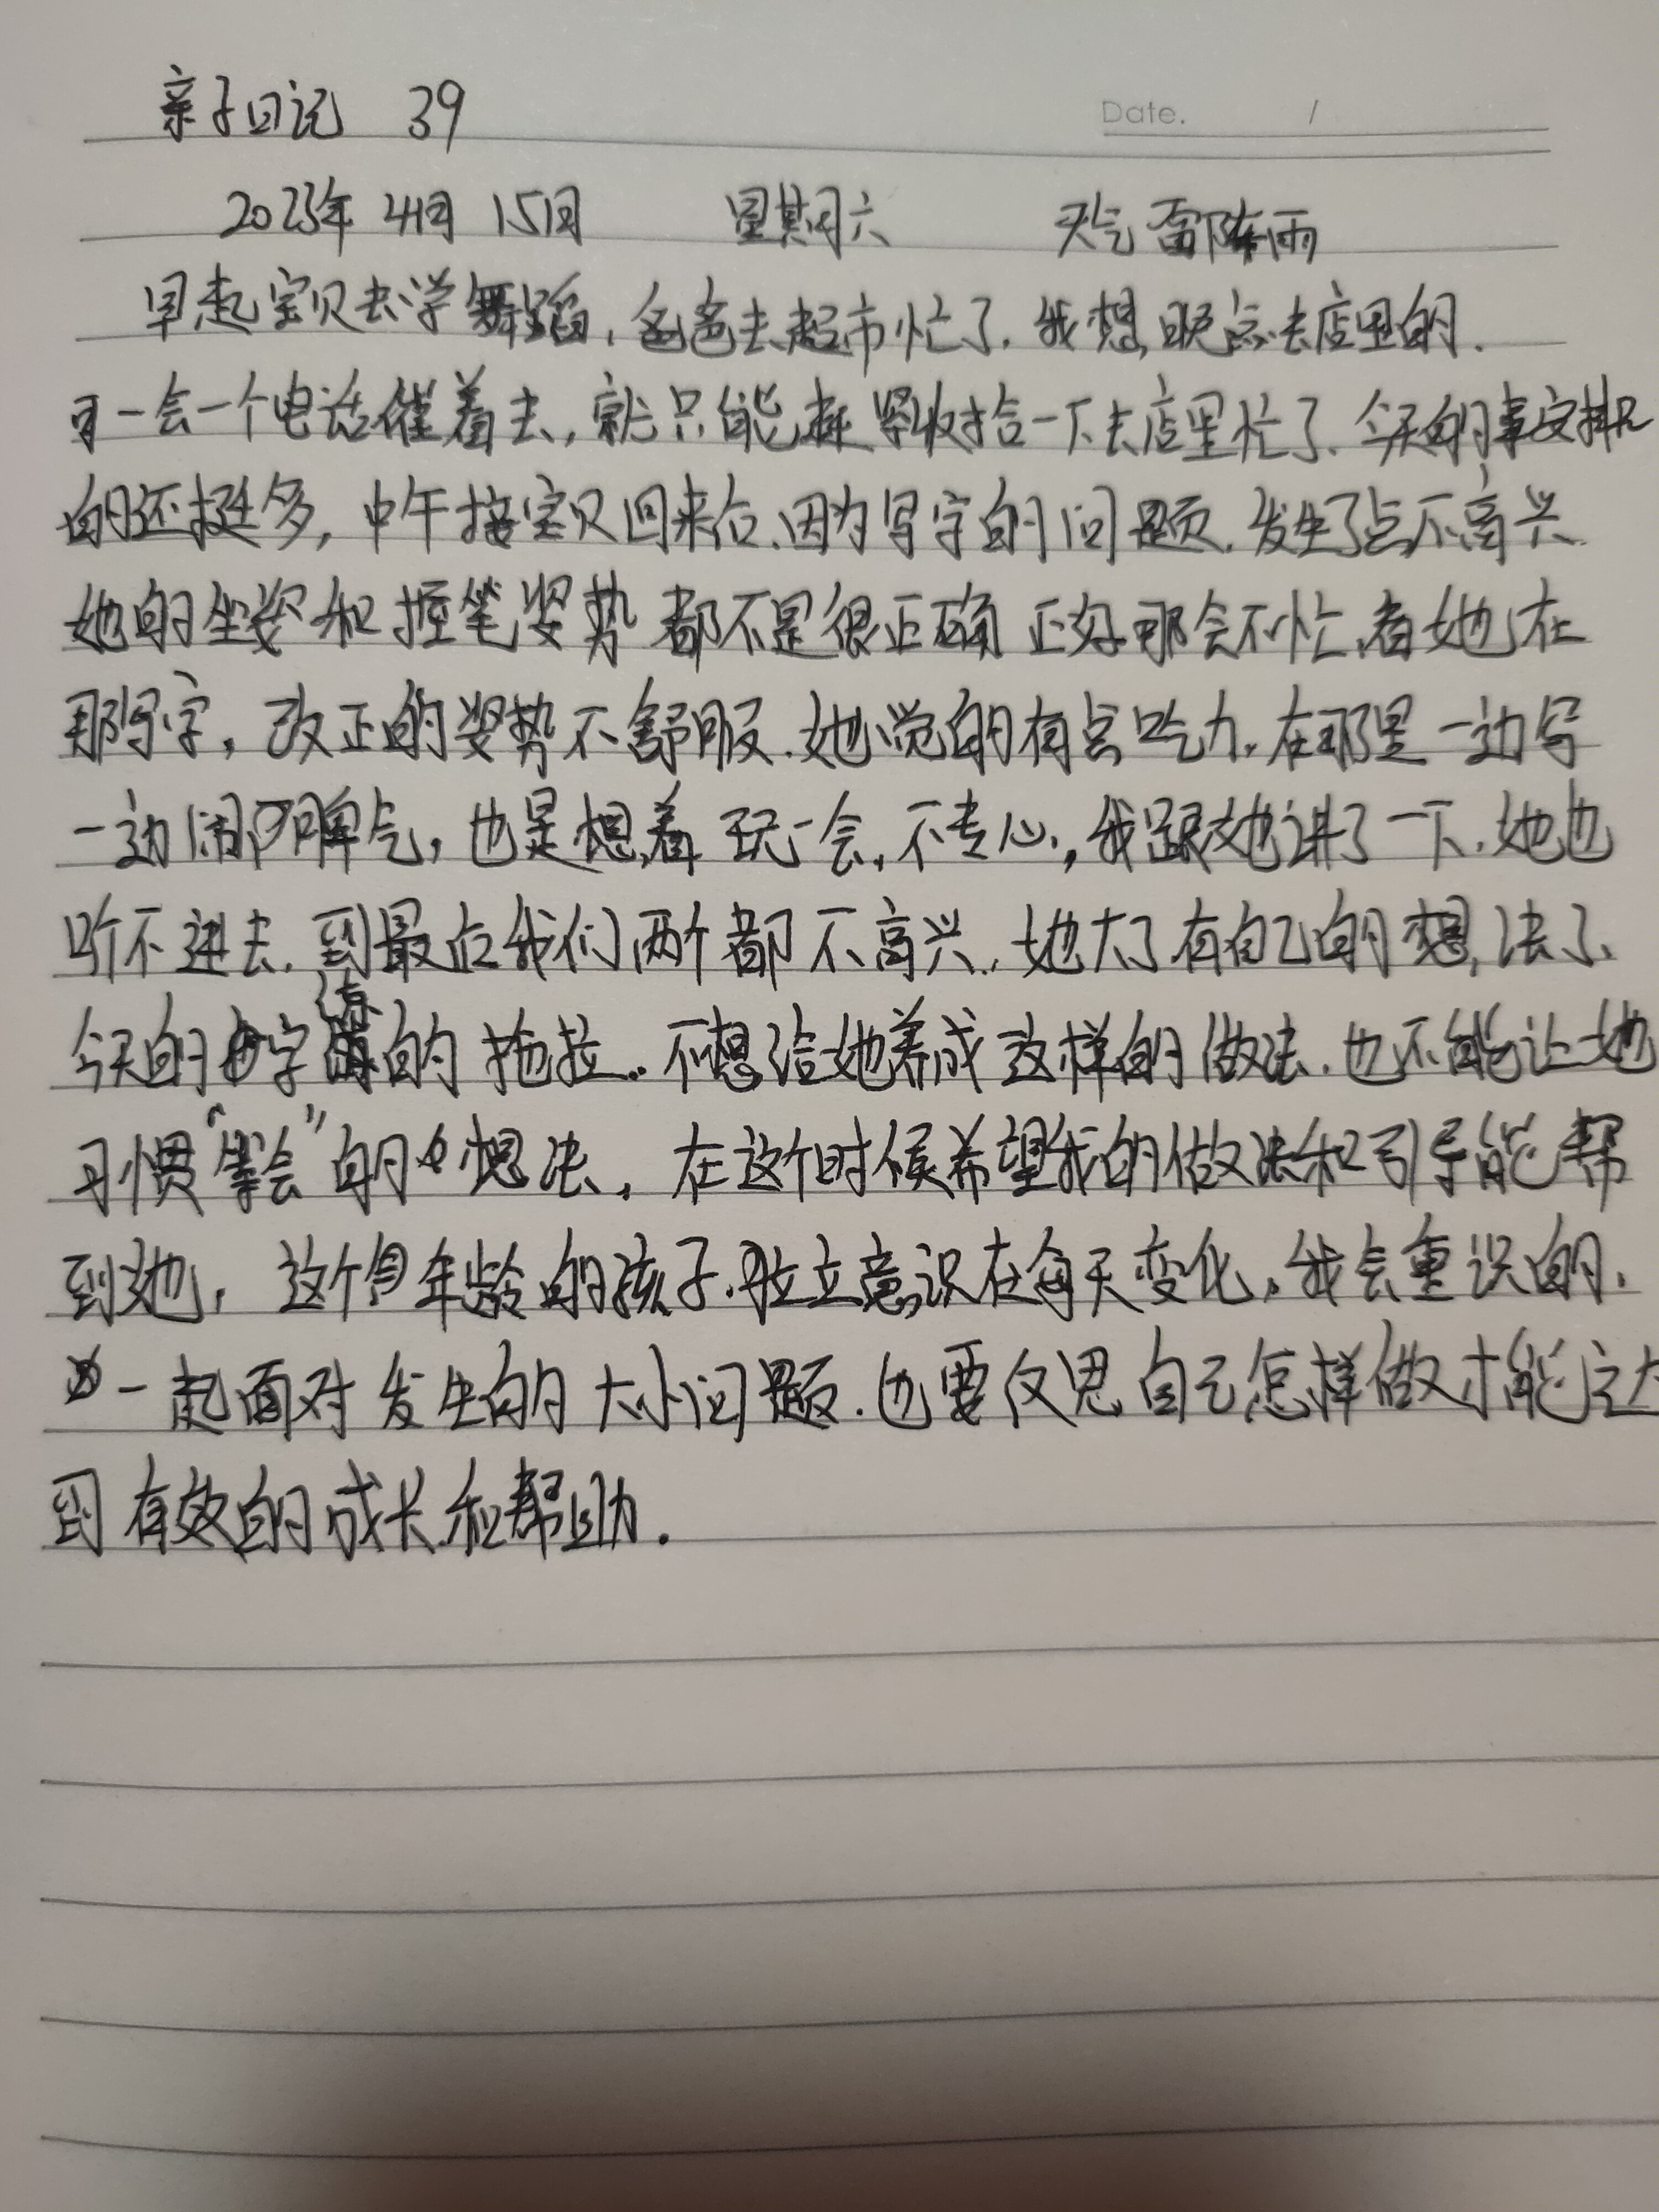 亲子日记 39
Date. /
2023年 4月 15日 星期六 天气 雷阵雨
早起宝贝去学舞蹈，爸爸去超市忙了．我想晚点去店里的．
可一会一个电话催着去，就只能赶紧收拾一下去店里忙了．今天的事安排
的还挺多，中午接宝贝回来后．因为写字的问题．发生了点不高兴
她的坐姿和握笔姿势都不是很正确 正好那会不忙．看她在
那写字，改正的姿势不舒服．她觉的有点吃力．在那里一边写
一边闹脾气，也是想着玩一会，不专心，我跟她讲了一下．她也
听不进去．到最后我们两个都不高兴．她大了有自己的想法了、
今天的字练的拖拉．不想给她养成这样的做法．也不能让她
习惯“等会”的想法，在这个时候希望我的做法和引导能帮
到她，这个年龄的孩子．独立意识在每天变化，我会重识的．
一起面对发生的大小问题．也要反思自己怎样做才能达
到有效的成长和帮助．